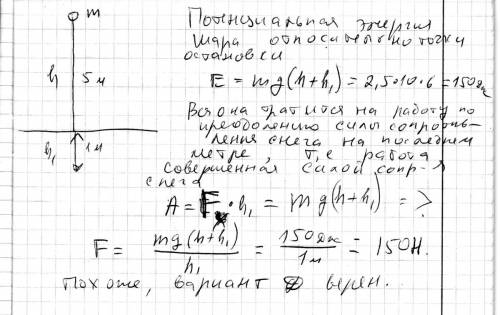 m
h 5 м
h₁ 1м
Потенциальная энергия
шара относительно точки
остановки
E = mg(h+h₁) = 2,5·10·6 = 150дж
Вся она тратится на работу по
преодолению силы сопротив-
ления снега на последнем
метре, т,е работа
совершенная силой сопр-я
снега
A = F·h₁ = mg(h+h₁) = >
F = mg(h+h₁)/h₁ = 150дж/1м = 150Н.
Похоже, вариант верен.